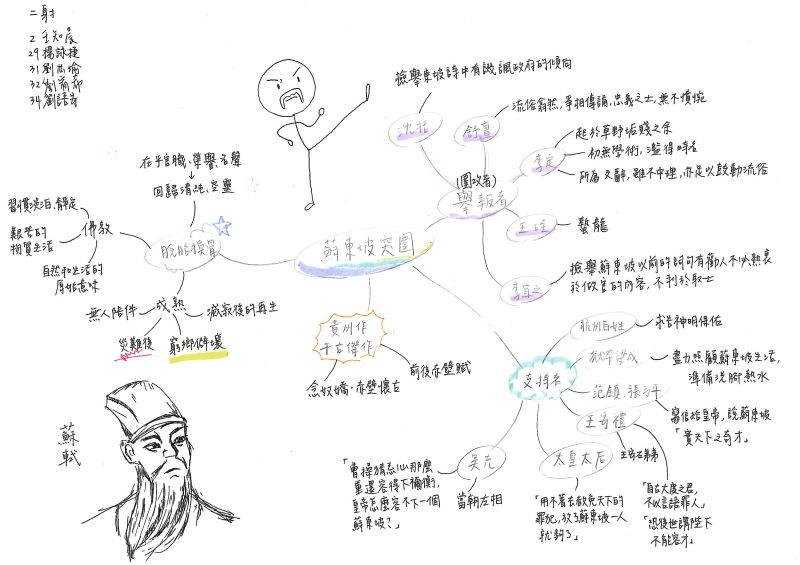 二射
2 王知晨
29 楊詠捷
31 劉
32 劉
34 劉語
檢舉東坡詩中有譏諷政府的傾向
沈括
流俗翕然，爭相傳誦，忠義之士，無不憤惋
舒亶
起於草野垢賤之餘
初無學術，濫得時名
所為文辭，雖不中理，亦足以鼓動流俗
李定
(圍攻者)
舉報者
王珪
蟄龍
李宜之
檢舉蘇東坡以前的詞句有勸人不必熱衷
於做官的內容，不利於取士
蘇東坡突圍
在乎官職、榮譽、名聲
回歸清純、空靈
脫胎換骨
佛教
習慣淡泊、靜定
艱苦的
物質生活
自然和生活的
原始意味
成熟
無人陪伴
滅寂後的再生
災難後
窮鄉僻壤
黃州作
千古傑作
念奴嬌·赤壁懷古
前後赤壁賦
支持者
杭州百姓
求告神明保佑
獄卒梁成
盡力照顧蘇東坡生活，
準備洗腳熱水
范鎮、張方平
寫信給皇帝，說蘇東坡
「實天下之奇才」
王安禮
王安石弟弟
「自古大度之君，
不以言語罪人」
「恐後世謂陛下
不能容才」
太皇太后
「用不著去赦免天下的
罪犯，放了蘇東坡一人
就夠了」
吳充
當朝左相
「曹操猜忌心那麼
重還容得下禰衡，
皇帝怎麼容不下一個
蘇東坡？」
蘇軾